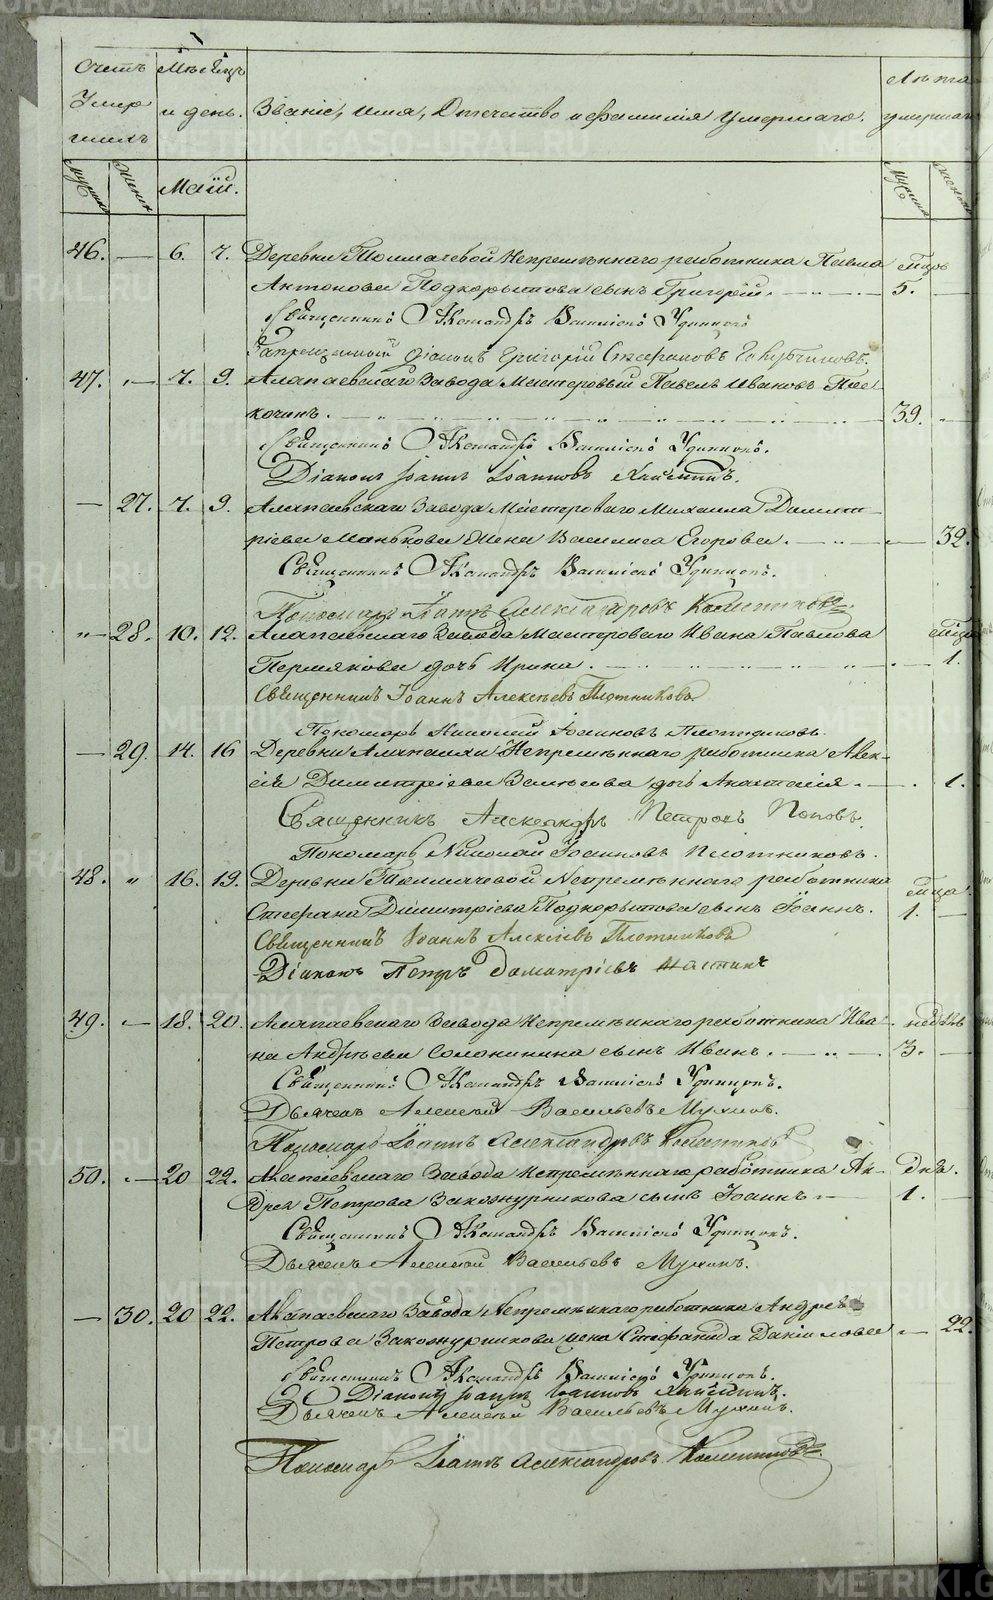 Счетъ Умершихъ
Мѣсяцъ и день.
Званіе, имя, Отечество и фамилія умершаго.
Лѣта умершаго
Май.
46. — 6. 7. Деревни Толмачевой Непремѣннаго работника Павла мѣцъ
Антонова Подкорытова сынъ Григорій. 5. —
Священникъ Александръ Удинцовъ
Запрещенный Діаконъ Григорій Стефановъ
47. — 7. 9. Алапаевскаго Завода Мастеровый Павелъ Ивановъ
кочинъ. 39.
Священникъ Александръ Удинцовъ.
Діаконъ Іоаннъ Іоанновъ
— 27. 7. 9. Алапаевскаго Завода Мастероваго Михаила Димит-
ріева Манькова жена Василиса Егорова. — 32.
Священникъ Александръ Удинцовъ.
Пономарь Іоаннъ Александровъ
" 28. 10. 12. Алапаевскаго Завода Мастероваго Ивана Павлова
Пермякова дочь Ирина. — 1.
Священникъ Іоаннъ Алексѣевъ Плотниковъ
Пономарь Николай Іоанновъ Плотниковъ.
— 29. 14. 16 Деревни Алапаихи Непремѣннаго работника Алек-
сія Димитріева дочь Анастасія. — 1.
Священникъ Александръ Петровъ Поповъ.
Пономарь Николай Іоанновъ Плотниковъ.
48. " 16. 19. Деревни Толмачевой Непремѣннаго работника мѣца.
Стефана Димитріева Подкорытова сынъ Іоаннъ. 1. —
Священникъ Іоаннъ Алексіевъ Плотниковъ
Діаконъ Петръ Домитріевъ
49. — 18. 20. Алапаевскаго Завода Непремѣннаго работника Ива- недѣль
на Андрѣева Солонинина сынъ Иванъ. 3. —
Священникъ Александръ Удинцовъ.
Дьячекъ Алексѣй Васильевъ Мухинъ.
Пономарь Іоаннъ Александровъ
50. — 20 22. Алапаевскаго Завода Непремѣннаго работника Ан- днь.
дрея Петрова Закожурникова сынъ Іоаннъ. — 1.
Священникъ Александръ Удинцовъ.
Дьячекъ Алексѣй Васильевъ Мухинъ.
— 30. 20 22. Алапаевскаго Завода Непремѣннаго работника Андрея
Петрова Закожурникова жена Стефанида Даніилова — 22.
Священникъ Александръ Удинцовъ.
Діаконъ Іоаннъ Іоанновъ
Дьячекъ Алексѣй Васильевъ Мухинъ.
Пономарь Іоаннъ Александровъ
METRIKI.GASO-URAL.RU